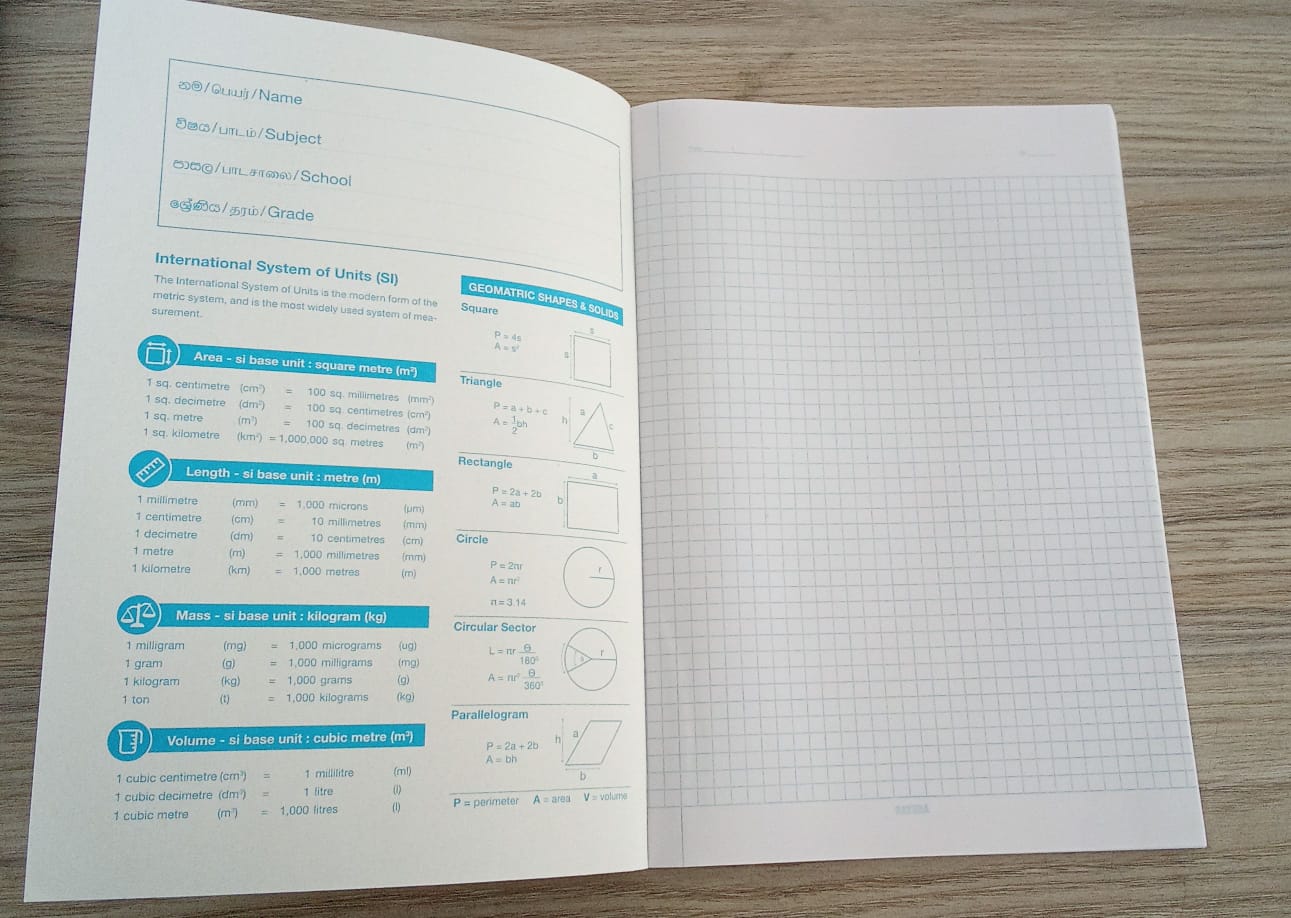 නම/பெயர்/Name
විෂය/பாடம்/Subject
පාසල/பாடசாலை/School
ශ්‍රේණිය/தரம்/Grade
International System of Units (SI)
The International System of Units is the modern form of the
metric system, and is the most widely used system of mea-
surement.
Area - si base unit : square metre (m²)
1 sq. centimetre (cm²) = 100 sq. millimetres (mm²)
1 sq. decimetre (dm²) = 100 sq. centimetres (cm²)
1 sq. metre (m²) = 100 sq. decimetres (dm²)
1 sq. kilometre (km²) = 1,000,000 sq. metres (m²)
Length - si base unit : metre (m)
1 millimetre (mm) = 1,000 microns (µm)
1 centimetre (cm) = 10 millimetres (mm)
1 decimetre (dm) = 10 centimetres (cm)
1 metre (m) = 1,000 millimetres (mm)
1 kilometre (km) = 1,000 metres (m)
Mass - si base unit : kilogram (kg)
1 milligram (mg) = 1,000 micrograms (ug)
1 gram (g) = 1,000 milligrams (mg)
1 kilogram (kg) = 1,000 grams (g)
1 ton (t) = 1,000 kilograms (kg)
Volume - si base unit : cubic metre (m³)
1 cubic centimetre (cm³) = 1 millilitre (ml)
1 cubic decimetre (dm³) = 1 litre (l)
1 cubic metre (m³) = 1,000 litres (l)
GEOMATRIC SHAPES & SOLIDS
Square
P = 4s
A = s²
s
s
Triangle
P = a + b + c
A = 1/2 bh
h
a
c
b
Rectangle
P = 2a + 2b
A = ab
a
b
Circle
P = 2πr
A = πr²
π = 3.14
r
Circular Sector
L = πr θ/180°
A = πr² θ/360°
r
Parallelogram
P = 2a + 2b
A = bh
h
a
b
P = perimeter A = area V = volume